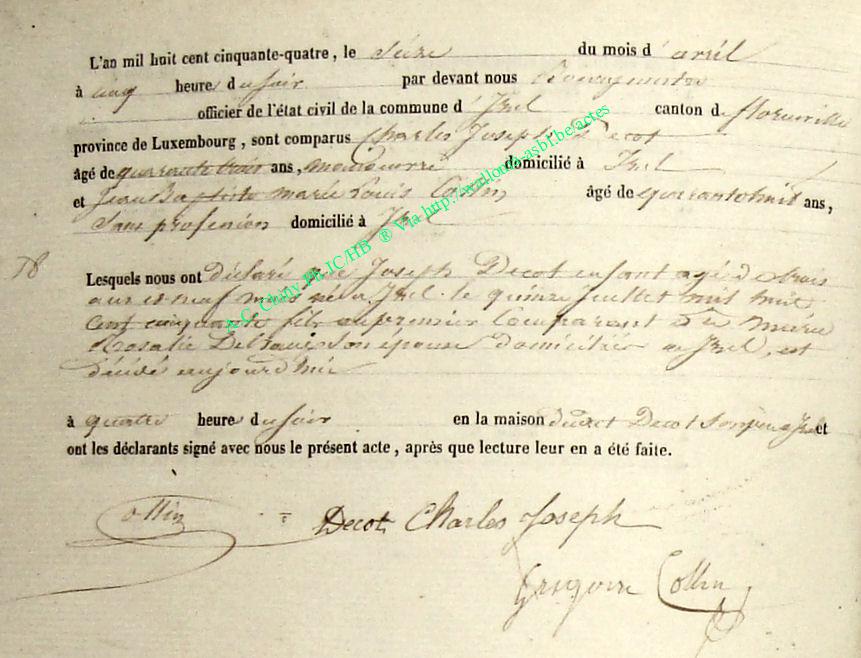 L'an mil huit cent cinquante-quatre, le Seize du mois d'avril
à cinq heure du soir par devant nous Bourgmestre
officier de l'état civil de la commune d'Izel canton de florenville
province de Luxembourg, sont comparus Charles Joseph Decot
âgé de quarante trois ans, manoeuvre domicilié à Izel
et Jean Baptiste marie Louis Collin âgé de quarante huit ans,
Sans profession domicilié à Izel
78
Lesquels nous ont déclaré que Joseph Decot enfant agé de trois
ans et neuf mois né a Izel le quinze Juillet mil huit
cent cinquante fils du premier Comparant et de marie
Rosalie son épouse domiciliés a Izel, est
décédé aujourd'hui
à quatre heure du soir en la maison dudit Decot son père a Izel et
ont les déclarants signé avec nous le présent acte, après que lecture leur en a été faite.
Collin Decot Charles Joseph
Gregoire Collin
A.G. Chiny Ph.IC/HB ® Via http://wallonia-asbl.be.actes